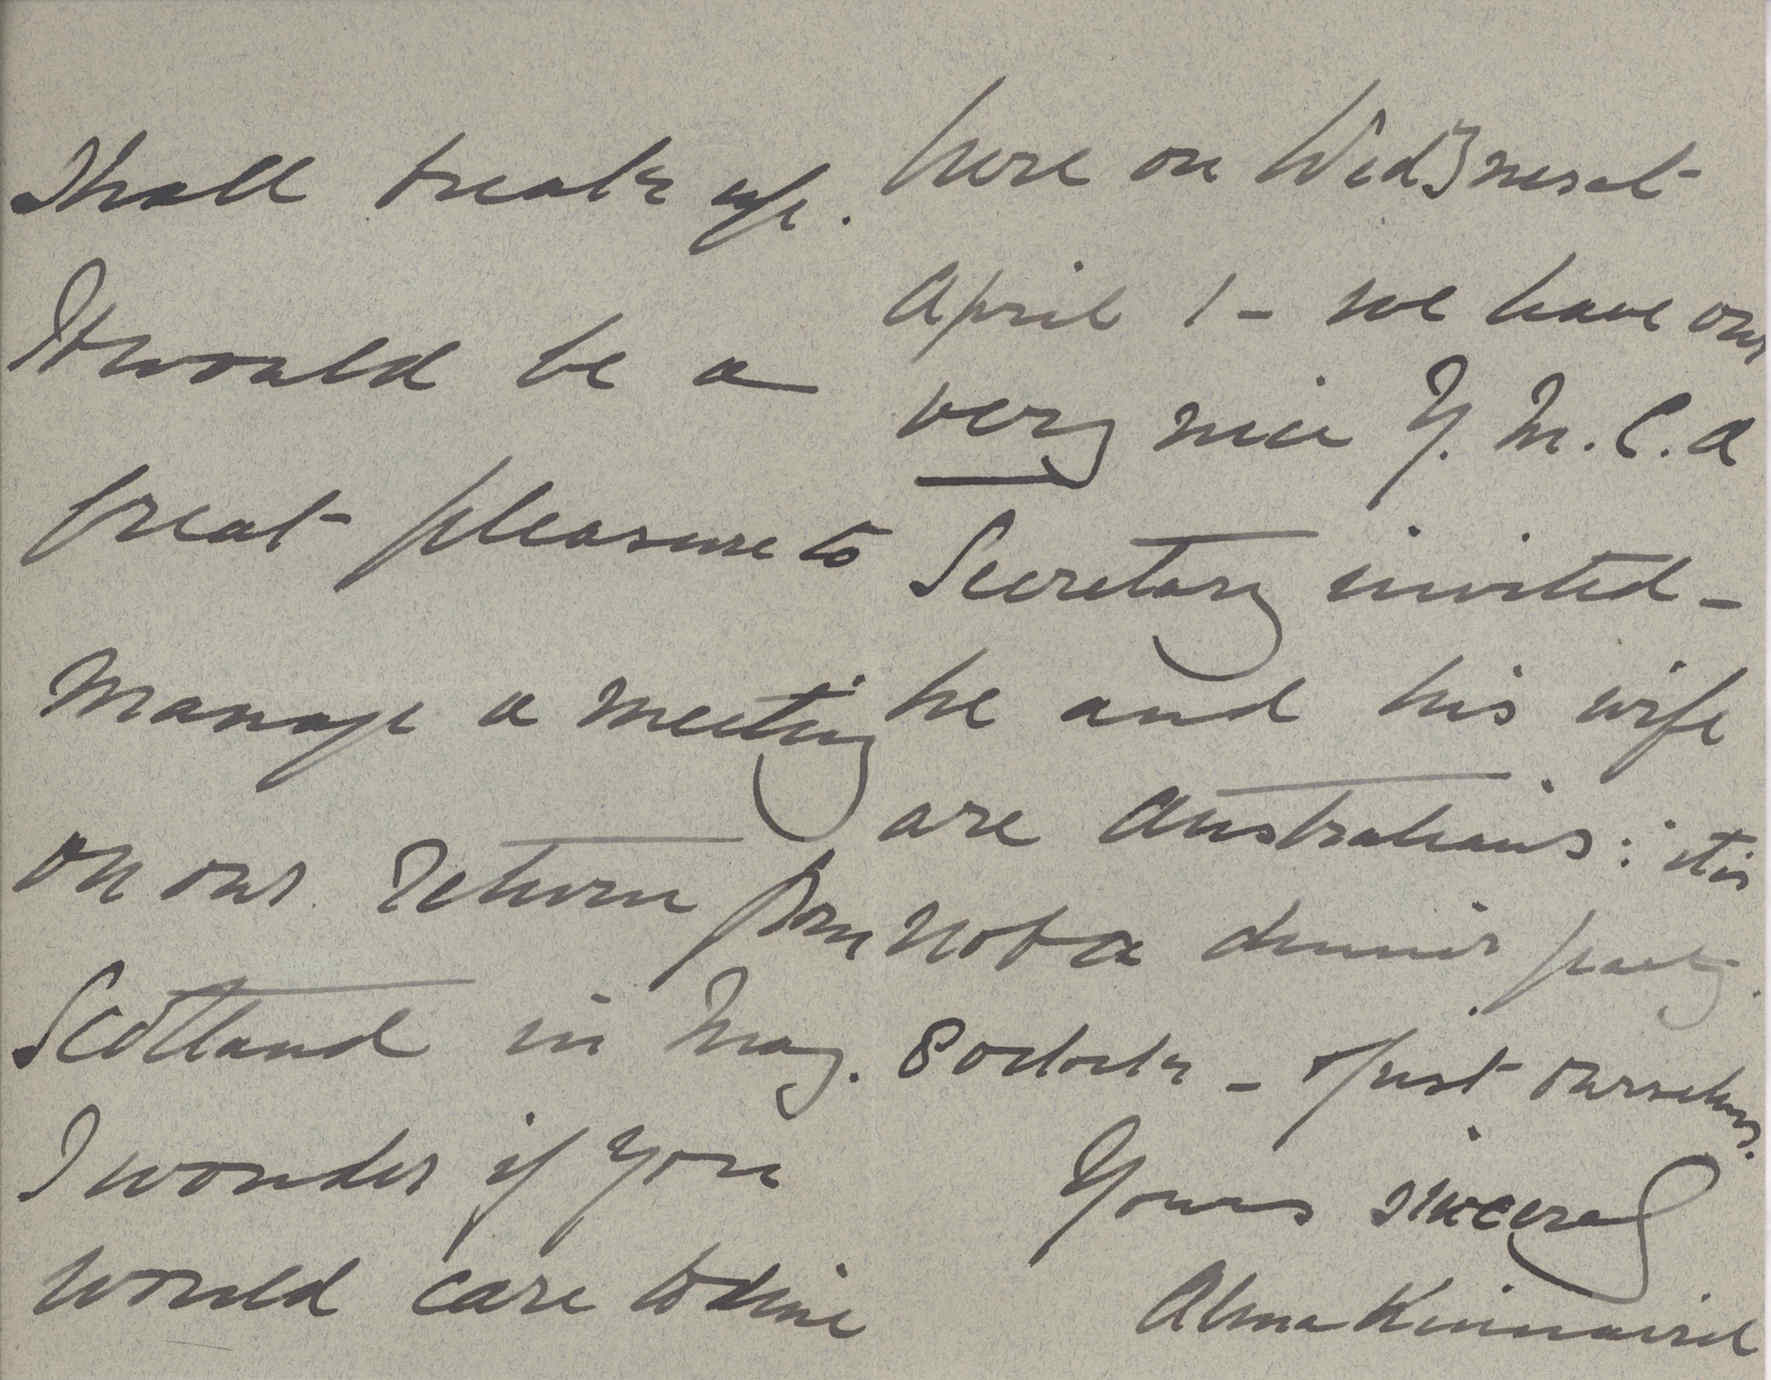 Shall break up.
It would be a
great pleasure to
manage a meeting
on our return from
Scotland in May.
I wonder if you
would care to dine
here on Wed: next
April 1 - we have our
very nice Y. M. C. A
Secretary invited -
he and his wife
are Australians: it is
not a dinner party.
8 o'clock - & just ourselves.
Yours sincerely
Alma Kinnaird